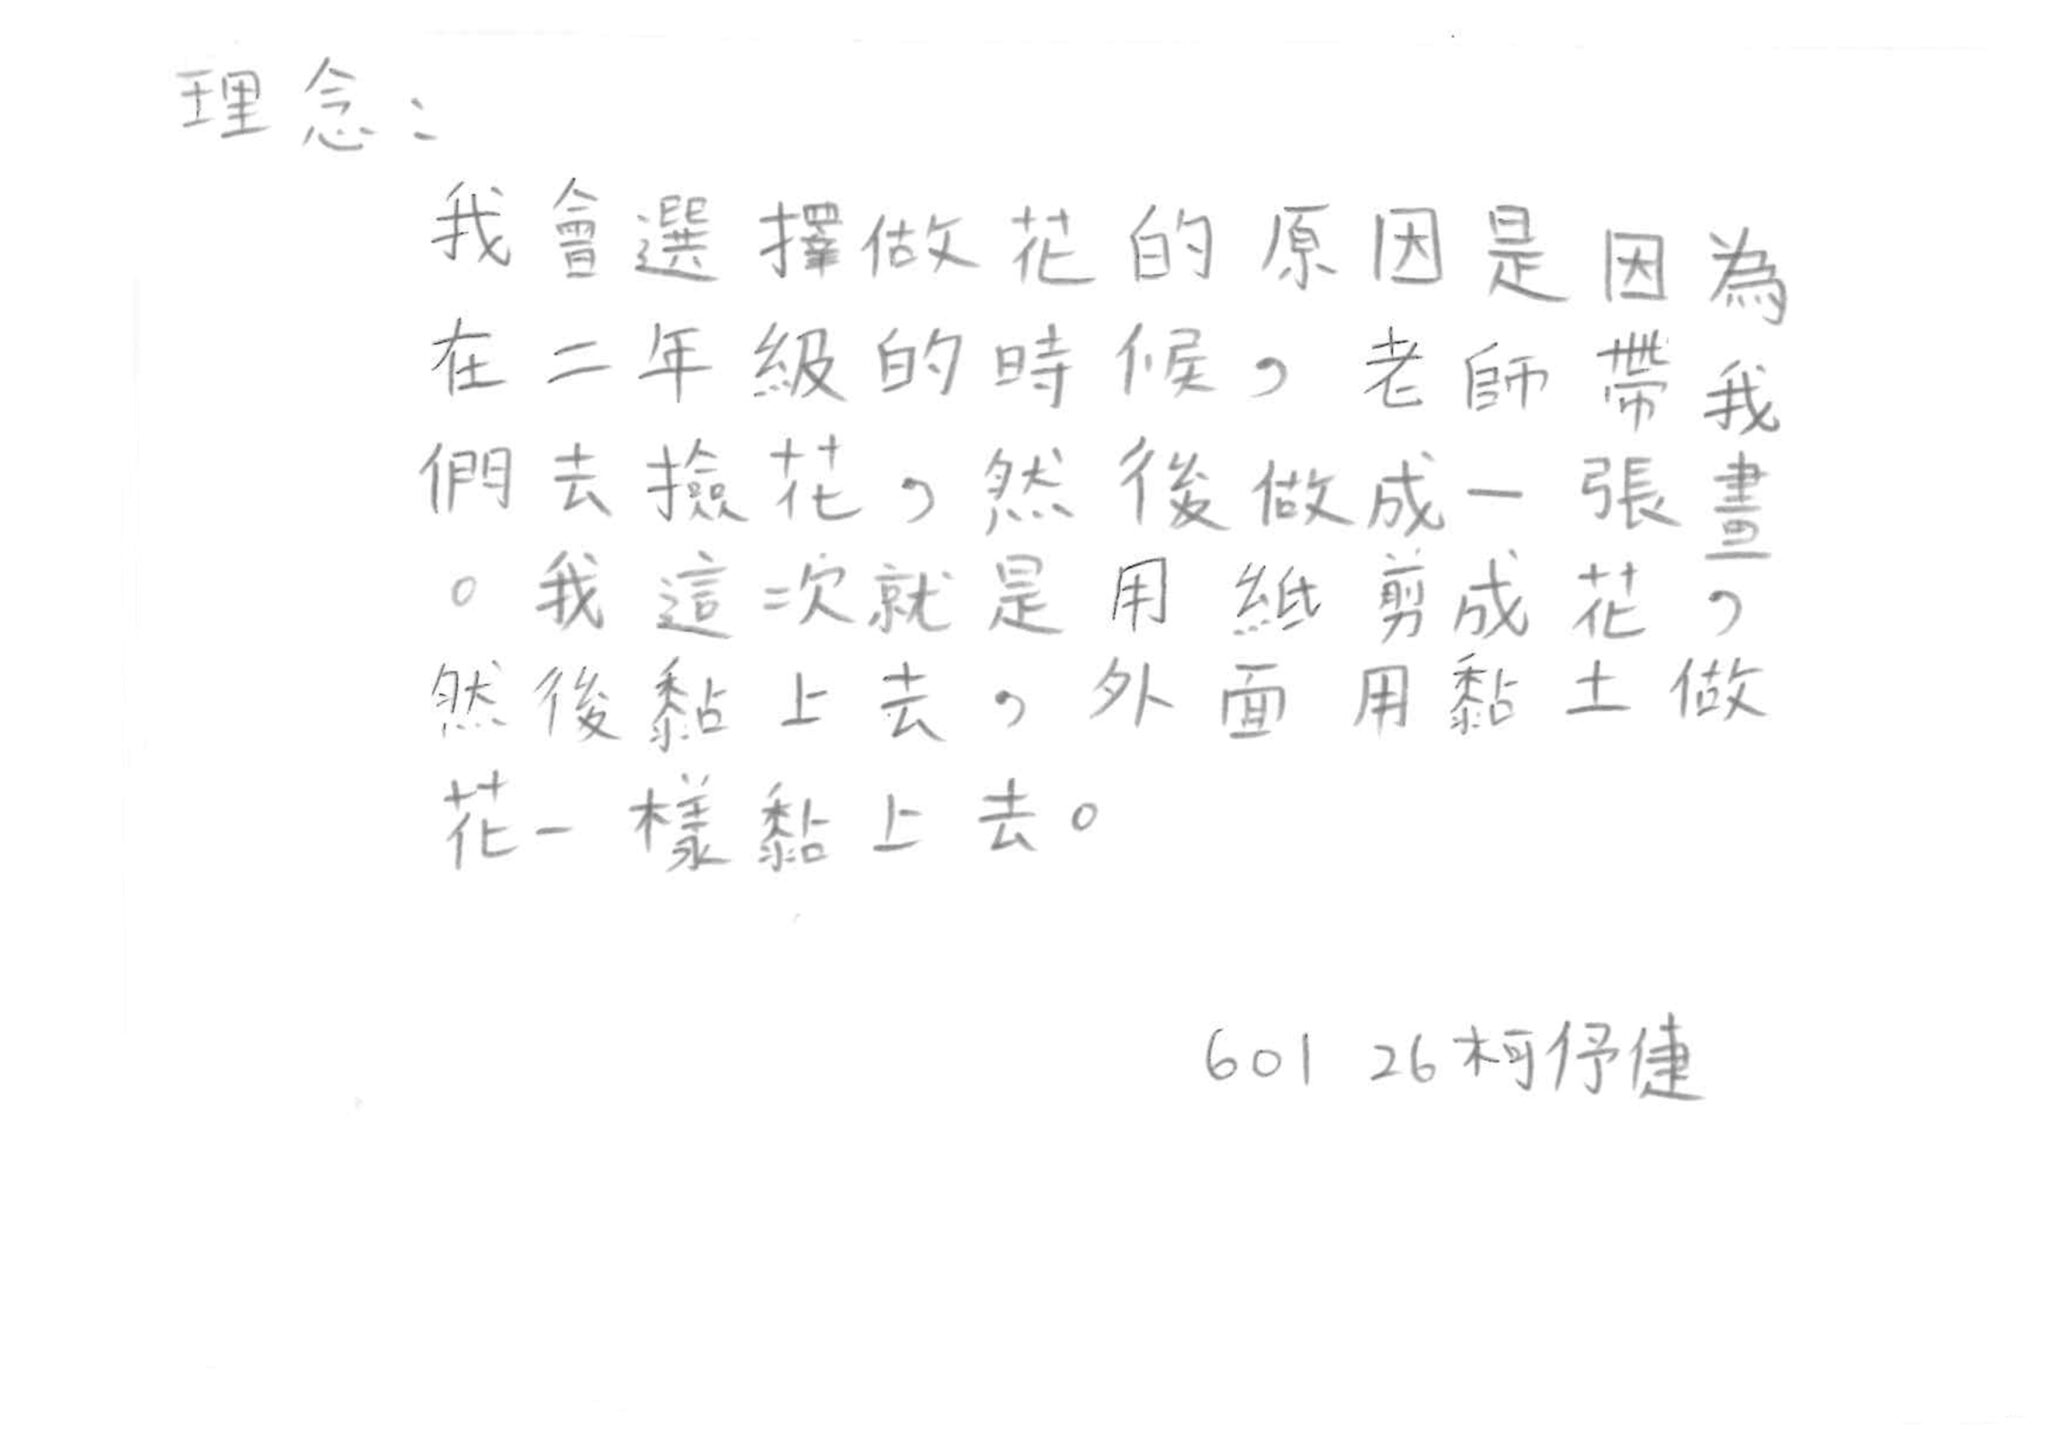 理念：
我會選擇做花的原因是因為
在二年級的時候，老師帶我
們去撿花，然後做成一張畫
。我這次就是用紙剪成花，
然後黏上去，外面用黏土做
花一樣黏上去。
601 26柯伃倢